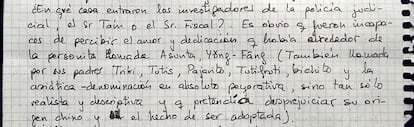 ¿En qué casa entraron los investigadores de la policía judi-
cial, el Sr Taín o el Sr. Fiscal? Es obvio q fueron incapa-
ces de percibir el amor y dedicación q había alrededor de
la personita llamada Asunta, Yŏng-Fāng (También llamada
por sus padres Triki, Tutis, Pajarito, Tutifruti, bichito y la
asiática -denominación en absoluto peyorativa, sino tan sólo
realista y descriptiva y q pretendía desprejuiciar su ori-
gen chino y el hecho de ser adoptada).